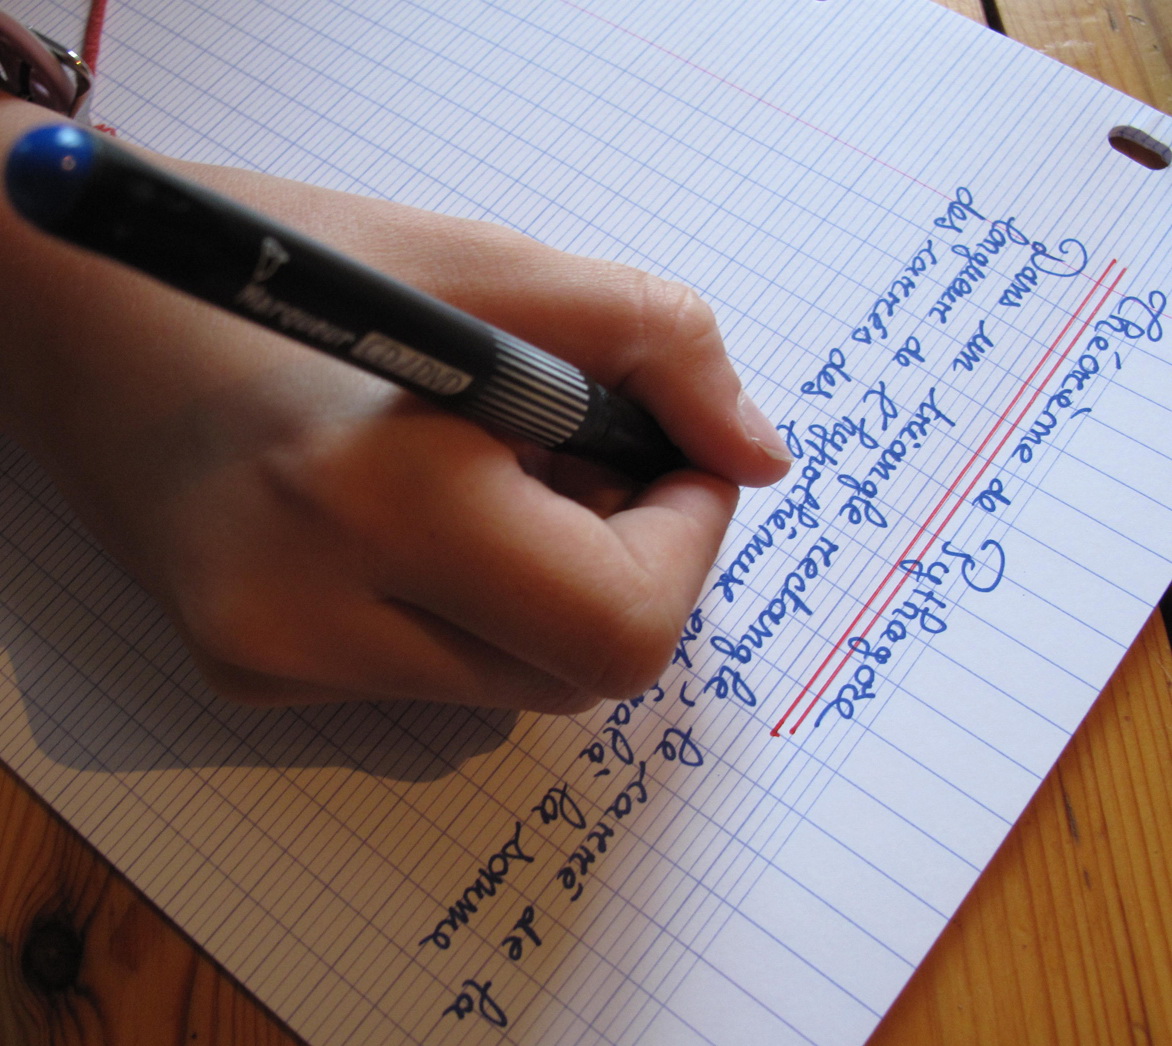 Théorème de Pythagore
Dans un triangle rectangle, le carré de la
longueur de l'hypothénuse est égal à la somme
des carrés des l
Marqueur